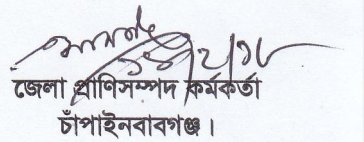 জেলা প্রাণিসম্পদ কর্মকর্তা
চাঁপাইনবাবগঞ্জ।